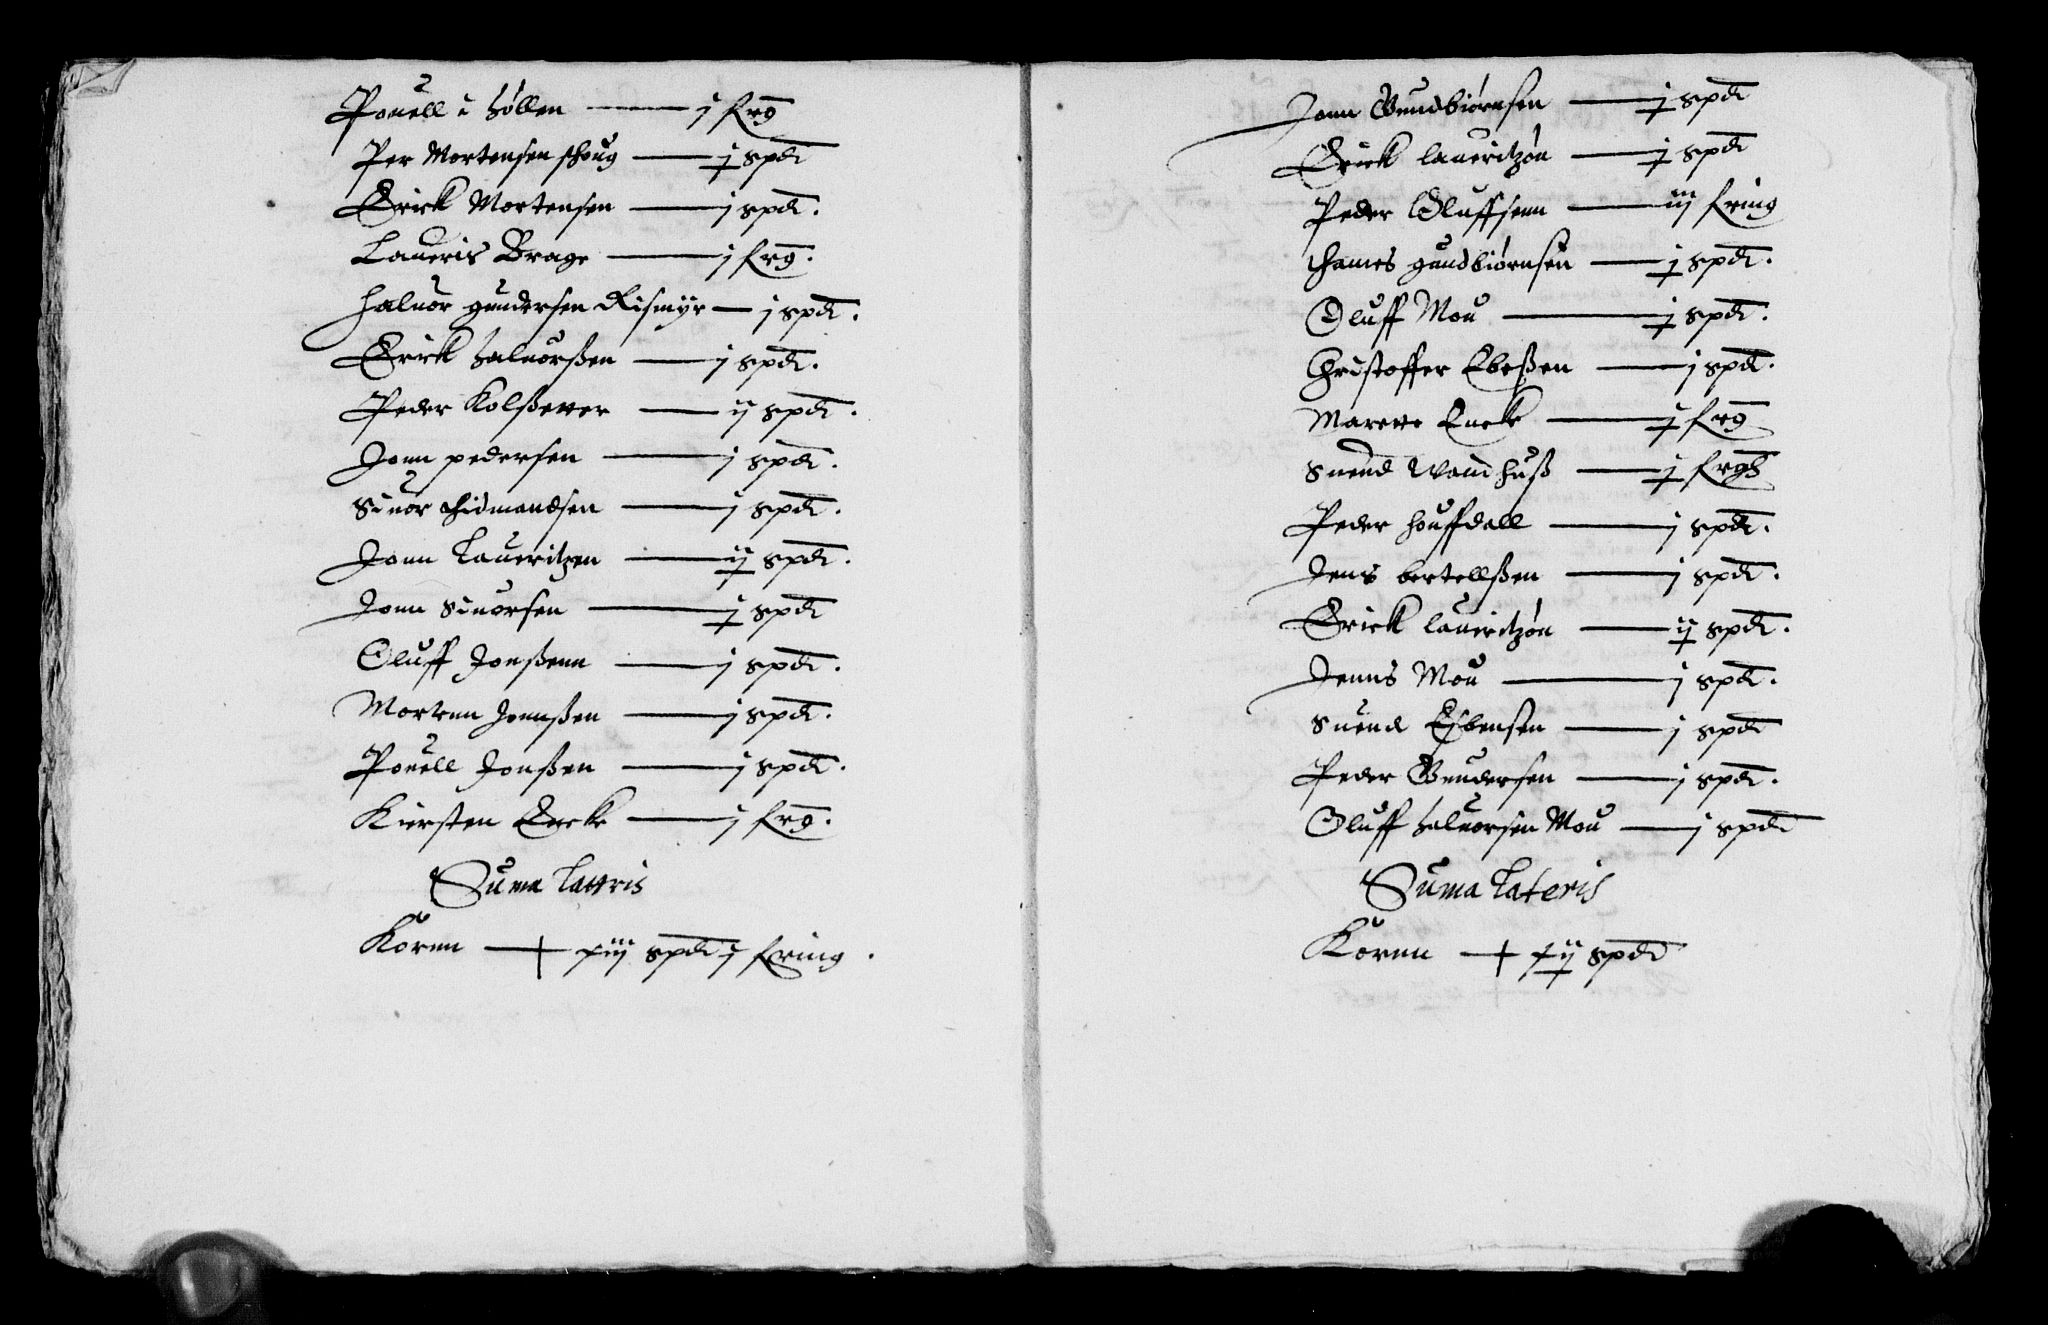 Pouell i hóllen —— j frg
Per Mortensen schoug —— j spd
Erick Mortensen —— j spd.
Laueris Brage —— j frg.
Haluor gundersen Rismÿr — j spd.
Erick haluorßen —— j spd.
Peder Kolßetter —— ij spd.
Jonn pedersen —— j spd.
Siuor Thidmandsen —— j spd.
Jonn Laueritzen —— ij spd.
Jonn Siuorsen —— j spd
Oluff Jonßenn —— j spd.
Mortenn Jonnßen —— j spd.
Pouell Jonßen —— j spd.
Kiersten Encke —— j frg.
Suma Latteris
Kornn —— xiij spd j fring.
Jonn Gundbiørnsen —— j spd
Erick laueritzøn —— j spd
Peder Oluffsenn —— iij fring
Hames gundbiørnsen —— j spd.
Oluff Mou —— j spd.
Christoffer Ebeßen —— j spd.
Marette Encke —— j frg
Suend Wandhuß —— j frg
Peder houffdall —— j spd.
Jens bertellßen —— j spd.
Erick laueritzøn —— ij spd.
Jenns Mou —— j spd.
Suend Esbensen —— j spd
Peder Gundersen —— j spd.
Oluff haluorsen Mou —— j spd
Suma Lateris
Kornn —— xij spd